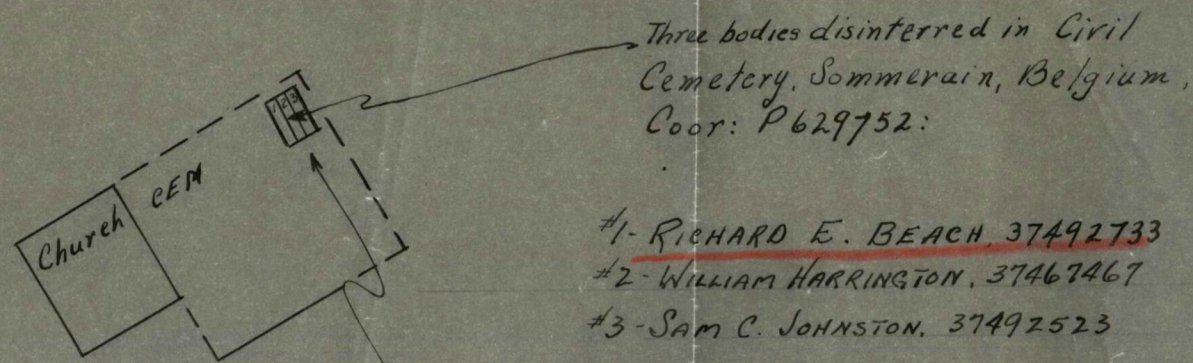 Three bodies disinterred in Civil
Cemetery, Sommerain, Belgium,
Coor: P629752:
1 2 3
CEM
Church
#1- RICHARD E. BEACH, 37492733
#2- WILLIAM HARRINGTON, 37467467
#3- SAM C. JOHNSTON. 37492523